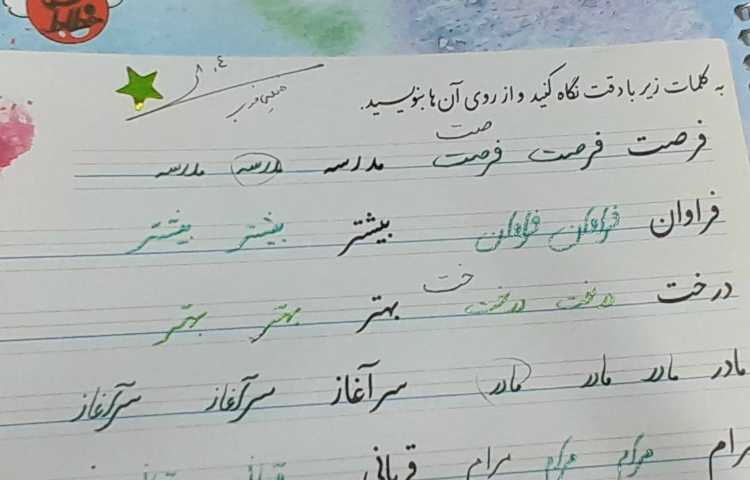 به کلمات زیر با دقت نگاه کنید و از روی آن ها بنویسید.
صت
فرصت فرصت فرصت مدرسه مدرسه مدرسه
فراوان فراوان فراوان بیشتر بیشتر بیشتر
خت
درخت درخت درخت بهتر بهتر بهتر
مادر مادر مادر مادر سرآغاز سرآغاز سرآغاز
مرام مرام مرام مرام قربانی